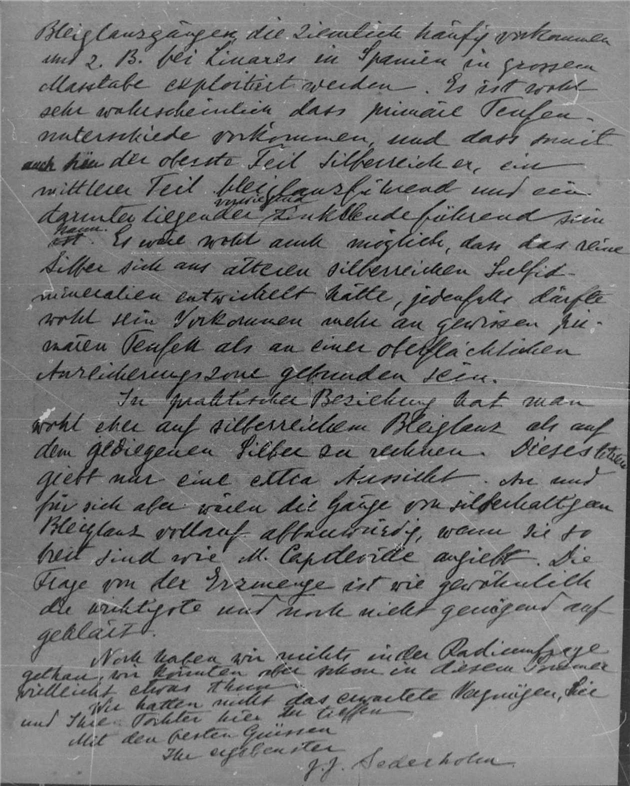 Bleiglanzgängen, die ziemlich häufig vorkommen
und z. B. bei Linares in Spanien in grossem
Masstabe exploitiert werden. Es ist wohl
sehr wahrscheinlich dass primäre Teufen-
unterschiede vorkommen, und dass somit
auch hier der oberste Teil silberreicher, ein
mittlerer Teil bleiglanzführend und ein
vorwiegend
darunter liegender zinkblendeführend sein
kann.
ist. Es wäre wohl auch möglich, dass das reine
Silber sich aus älteren silberreichen Sulfid-
mineralien entwickelt hätte, jedenfalls dürfte
wohl sein Vorkommen mehr an gewissen pri-
mären Teufen als an einer oberflächlichen
Anreicherungszone gebunden sein.
In praktischer Beziehung hat man
wohl eher auf silberreichem Bleiglanz als auf
dem gediegenen Silber zu rechnen. Dieses letztere
giebt nur eine extra Aussicht. An und
für sich aber wären die Gänge von silberhaltigem
Bleiglanz vollauf abbauwürdig, wenn sie so
breit sind wie M. Capdeville angiebt. Die
Frage von der Erzmenge ist wie gewöhnlich
die wichtigste und noch nicht genügend auf
geklärt.
Noch haben wir nichts in der Radiumfrage
gethan, wir könnten aber schon in diesem Sommer
vielleicht etwas thun.
Wir hatten nicht das erwartete Vergnügen, Sie
und Ihre Tochter hier zu treffen
Mit den besten Grüssen
Ihr ergebenster
J. J. Sederholm.